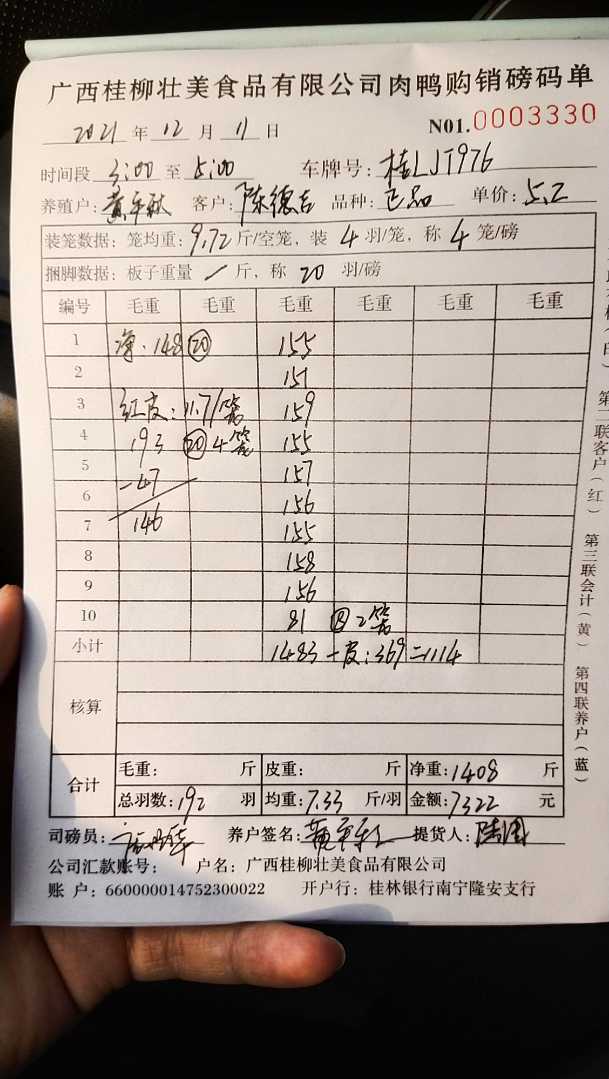 广西桂柳壮美食品有限公司肉鸭购销磅码单
2021年12月11日 N01.0003330
时间段 3:00 至 5:00 车牌号: 桂LJT976
养殖户: 黄 客户: 陈德吉 品种: 正品 单价: 5.2
装笼数据: 笼均重: 9.72 斤/空笼, 装 4 羽/笼, 称 4 笼/磅
捆脚数据: 板子重量 / 斤, 称 20 羽/磅
编号 毛重 毛重 毛重 毛重 毛重 毛重
1 净·148 20 155
2 151
3 红皮: 11.7/笼 159
4 193 20 4笼 155
5 157
-47
6 156
7 146 155
8 158
9 156
10 81 8 2笼
小计 1483 - 皮:369=1114
核算
合计 毛重: 斤 皮重: 斤 净重: 1408 斤
总羽数: 192 羽 均重: 7.33 斤/羽 金额: 7322 元
司磅员: 养户签名: 提货人: 陆国
公司汇款账号: 户名: 广西桂柳壮美食品有限公司
账 户: 660000014752300022 开户行: 桂林银行南宁隆安支行
第二联客户(红) 第三联会计(黄) 第四联养户(蓝)